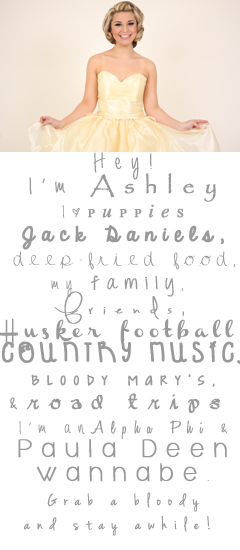 Hey!
I'm Ashley
I ♥ puppies
Jack Daniels,
deep-fried food,
my family,
Friends,
Husker football
country music,
BLOODY MARY'S,
& road trips
I'm an Alpha Phi &
Paula Deen
wannabe.
Grab a bloody
and stay awhile!